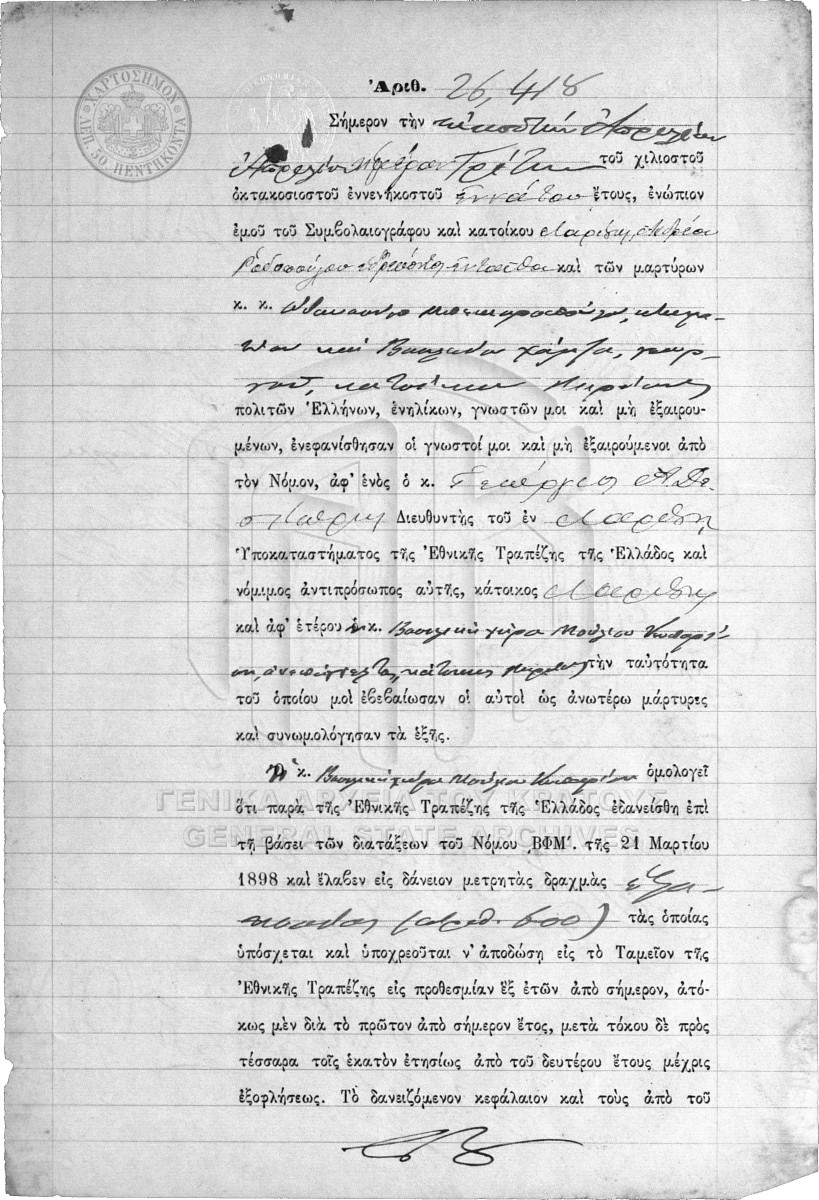 ΧΑΡΤΟΣΗΜΟΝ
ΛΕΠ. 50 ΠΕΝΤΗΚΟΝΤΑ
Ἀριθ. 26,418
Σήμερον τὴν εἰκοστὴν Ἀπριλίου
Ἀπριλίου ἡμέραν Τρίτην τοῦ χιλιοστοῦ
ὀκτακοσιοστοῦ ἐννενηκοστοῦ ἐννάτου ἔτους, ἐνώπιον
ἐμοῦ τοῦ Συμβολαιογράφου καὶ κατοίκου Λαρίσης Ἀνδρέου
Ῥοδοπούλου ἐνταῦθα καὶ τῶν μαρτύρων
κ. κ. Ἀθανασίου
καὶ Βασιλείου γεωρ-
γοῦ, κατοίκων
πολιτῶν Ἑλλήνων, ἐνηλίκων, γνωστῶν μοι καὶ μὴ ἐξαιρου-
μένων, ἐνεφανίσθησαν οἱ γνωστοί μοι καὶ μὴ ἐξαιρούμενοι ἀπὸ
τὸν Νόμον, ἀφ' ἑνὸς ὁ κ. Γεώργιος Α.
Διευθυντὴς τοῦ ἐν Λαρίσῃ
Ὑποκαταστήματος τῆς Ἐθνικῆς Τραπέζης τῆς Ἑλλάδος καὶ
νόμιμος ἀντιπρόσωπος αὐτῆς, κάτοικος Λαρίσης
καὶ ἀφ' ἑτέρου ἡ κ. Βασιλικὴ χήρα
κάτοικος τὴν ταὐτότητα
τοῦ ὁποίου μοὶ ἐβεβαίωσαν οἱ αὐτοὶ ὡς ἀνωτέρω μάρτυρες
καὶ συνωμολόγησαν τὰ ἑξῆς.
Ἡ κ. Βασιλικὴ χήρα ὁμολογεῖ
ΓΕΝΙΚΑ ΑΡΧΕΙΑ ΤΟΥ ΚΡΑΤΟΥΣ
ὅτι παρὰ τῆς Ἐθνικῆς Τραπέζης τῆς Ἑλλάδος ἐδανείσθη ἐπὶ
GENERAL STATE ARCHIVES
τῇ βάσει τῶν διατάξεων τοῦ Νόμου ͵ΒΦΜ΄. τῆς 21 Μαρτίου
1898 καὶ ἔλαβεν εἰς δάνειον μετρητὰς δραχμὰς ἑξα-
κοσίας (ἀριθ. 600) τὰς ὁποίας
ὑπόσχεται καὶ ὑποχρεοῦται ν' ἀποδώσῃ εἰς τὸ Ταμεῖον τῆς
Ἐθνικῆς Τραπέζης εἰς προθεσμίαν ἓξ ἐτῶν ἀπὸ σήμερον, ἀτό-
κως μὲν διὰ τὸ πρῶτον ἀπὸ σήμερον ἔτος, μετὰ τόκου δὲ πρὸς
τέσσαρα τοῖς ἑκατὸν ἐτησίως ἀπὸ τοῦ δευτέρου ἔτους μέχρις
ἐξοφλήσεως. Τὸ δανειζόμενον κεφάλαιον καὶ τοὺς ἀπὸ τοῦ